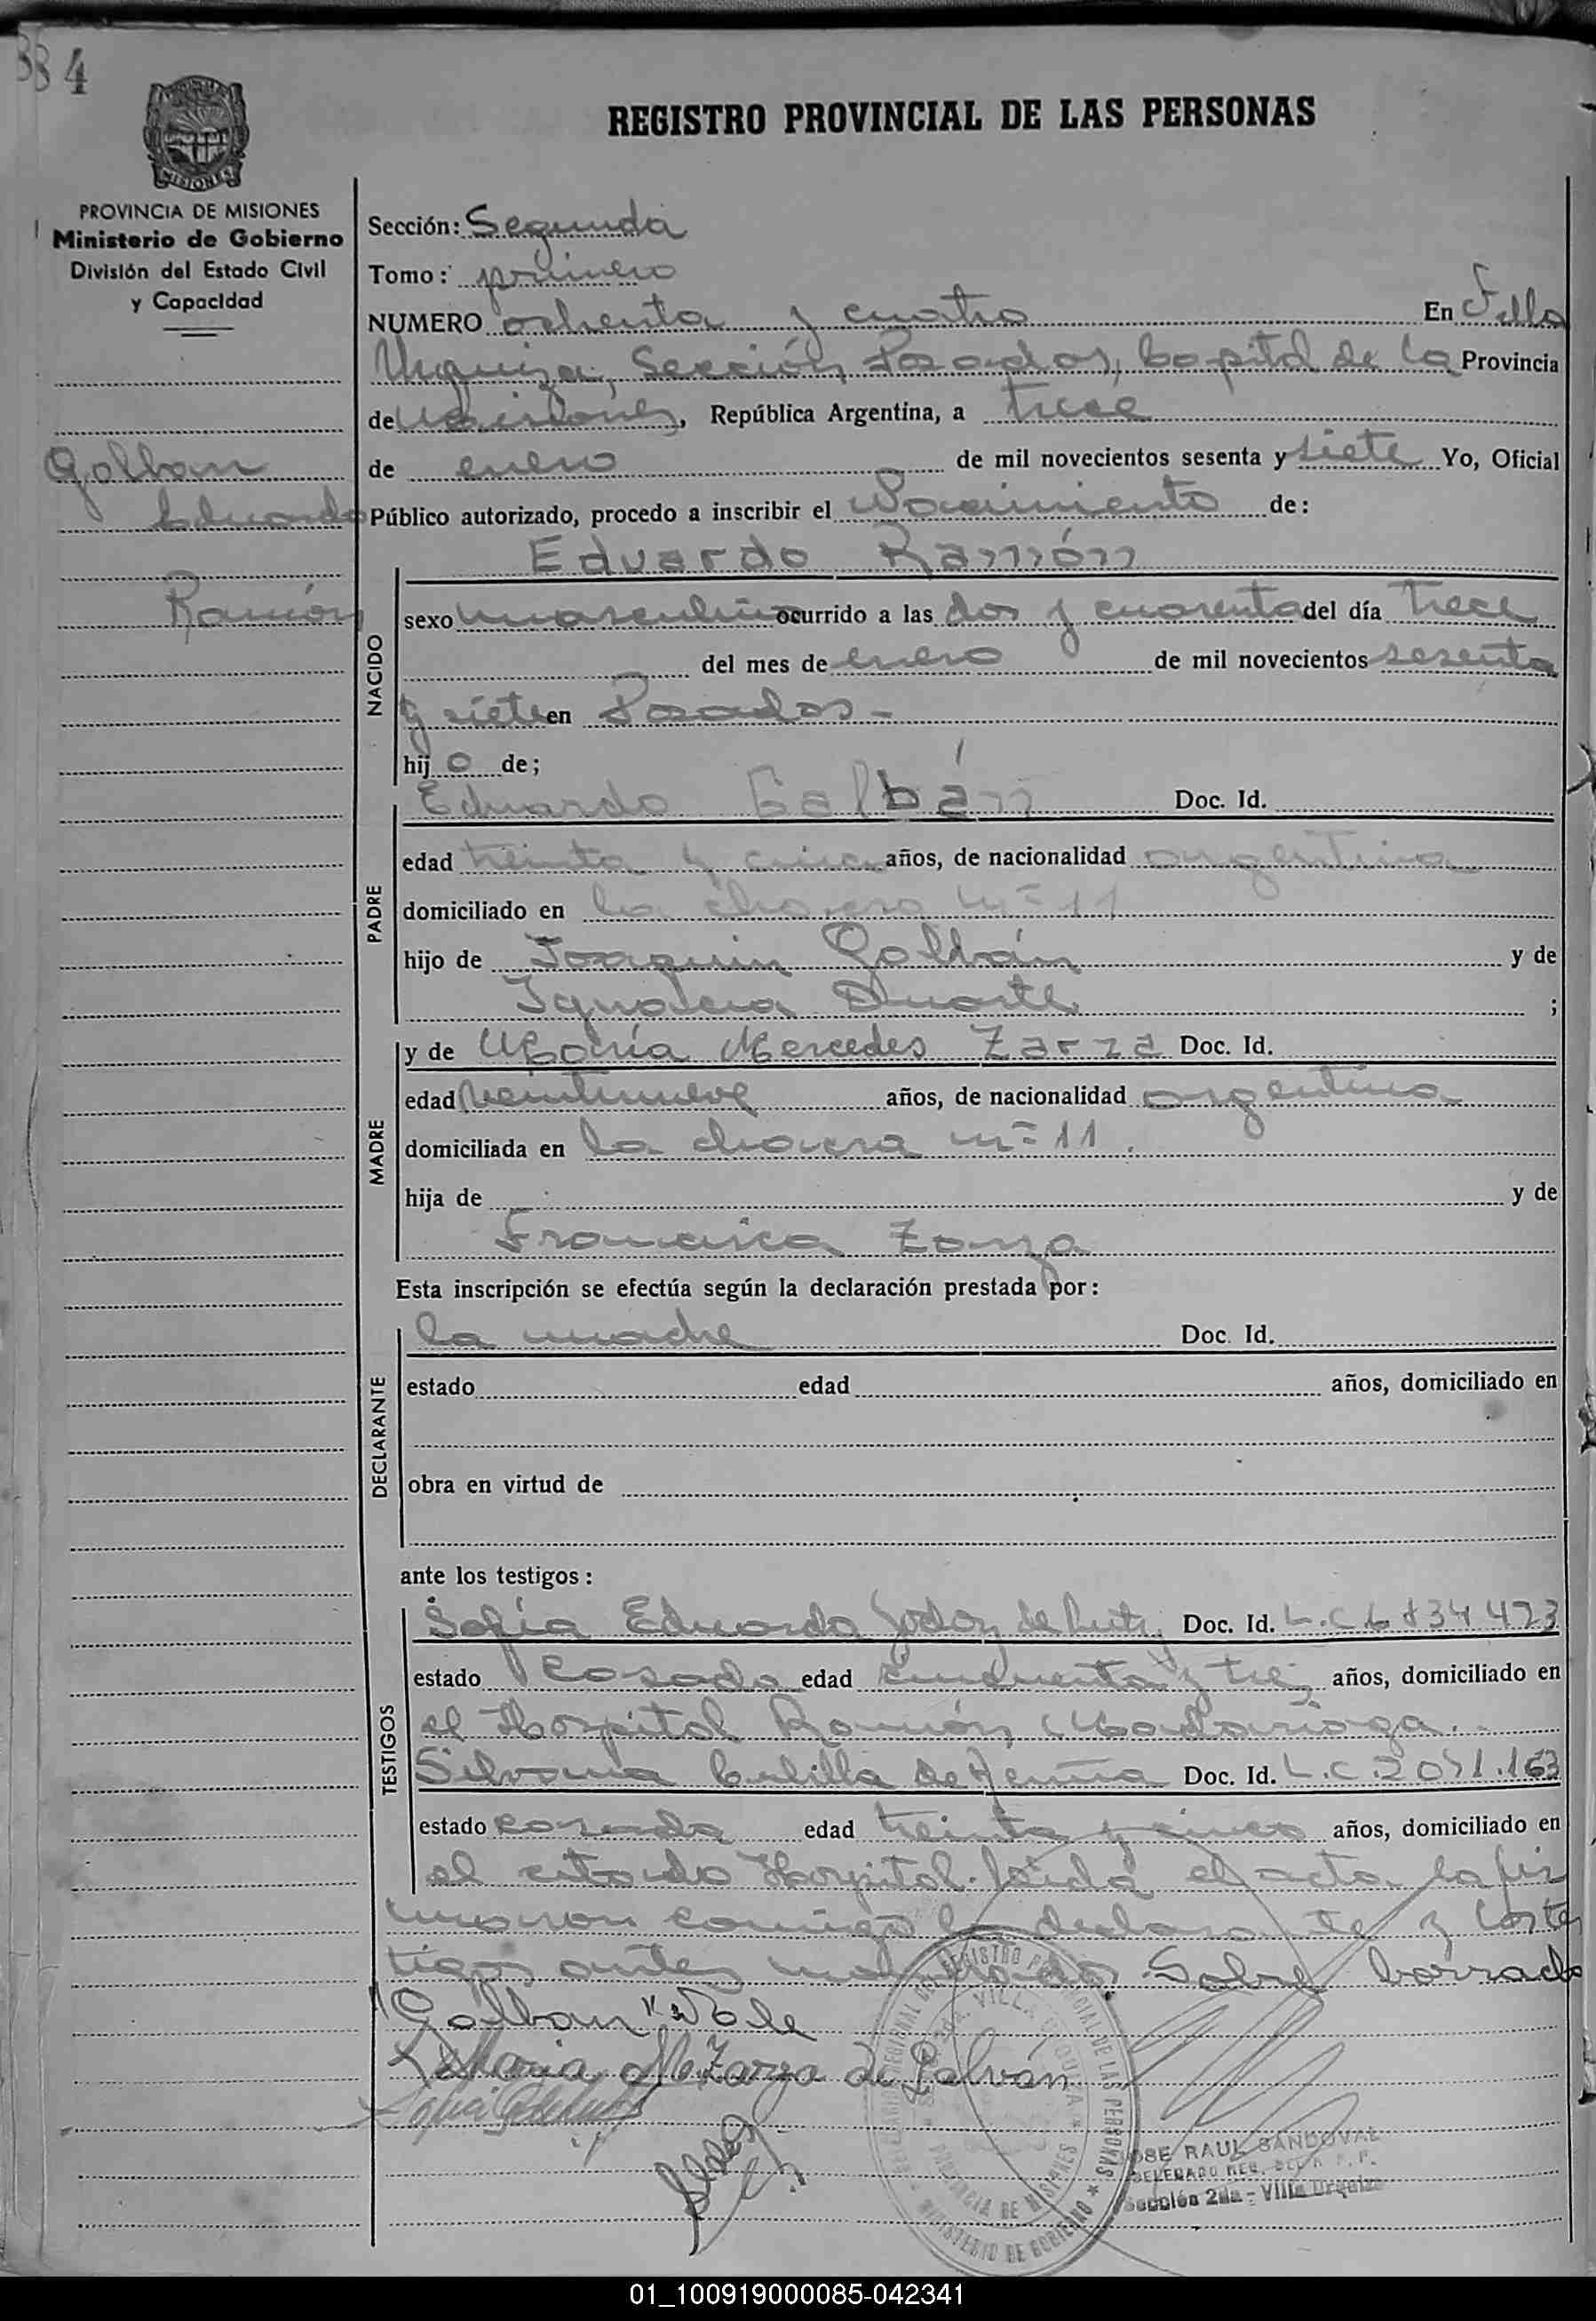 84
MISIONES
REGISTRO PROVINCIAL DE LAS PERSONAS
PROVINCIA DE MISIONES
Ministerio de Gobierno
División del Estado Civil
y Capacidad
Galban
Eduardo
Ramón
Sección: Segunda
Tomo: primero
NUMERO ochenta y cuatro En Villa
Urquiza, Sección Posadas, Capital de la Provincia
de Misiones, República Argentina, a trece
de enero de mil novecientos sesenta y siete Yo, Oficial
Público autorizado, procedo a inscribir el Nacimiento de:
NACIDO
Eduardo Ramón
sexo masculino ocurrido a las dos y cuarenta del día trece
del mes de enero de mil novecientos sesenta
y siete en Posadas-
hijo de;
PADRE
Eduardo Galbán Doc. Id.
edad treinta y cinco años, de nacionalidad argentina
domiciliado en la chacra nº 11
hijo de Joaquin Galbán y de
Ignacia Duarte ;
MADRE
y de María Mercedes Zarza Doc. Id.
edad veintinueve años, de nacionalidad argentina
domiciliada en la chacra nº 11.
hija de y de
Francisca Zarza
Esta inscripción se efectúa según la declaración prestada por:
DECLARANTE
la madre Doc. Id.
estado edad años, domiciliado en
obra en virtud de
ante los testigos:
TESTIGOS
Sofía Eduarda Godoy de Doc. Id. L.C.
estado casada edad cincuenta y tres años, domiciliado en
el Hospital Ramón Madariaga.
Silvana de Doc. Id. L.C.
estado casada edad treinta y cinco años, domiciliado en
el citado Hospital. Leída el acta, la fir
maron conmigo la declarante y los tes
tigos antes nombrados. Sobre borrado
"Galban" Vale
Maria M. Zarza de Galván
REGISTRO PROVINCIAL DE LAS PERSONAS
VILLA URQUIZA
PROVINCIA DE MISIONES
MINISTERIO DE GOBIERNO
JOSE RAUL SANDOVAL
DELEGADO REG. DEL R. P. P.
Sección 2da - Villa Urquiza
01_100919000085-042341